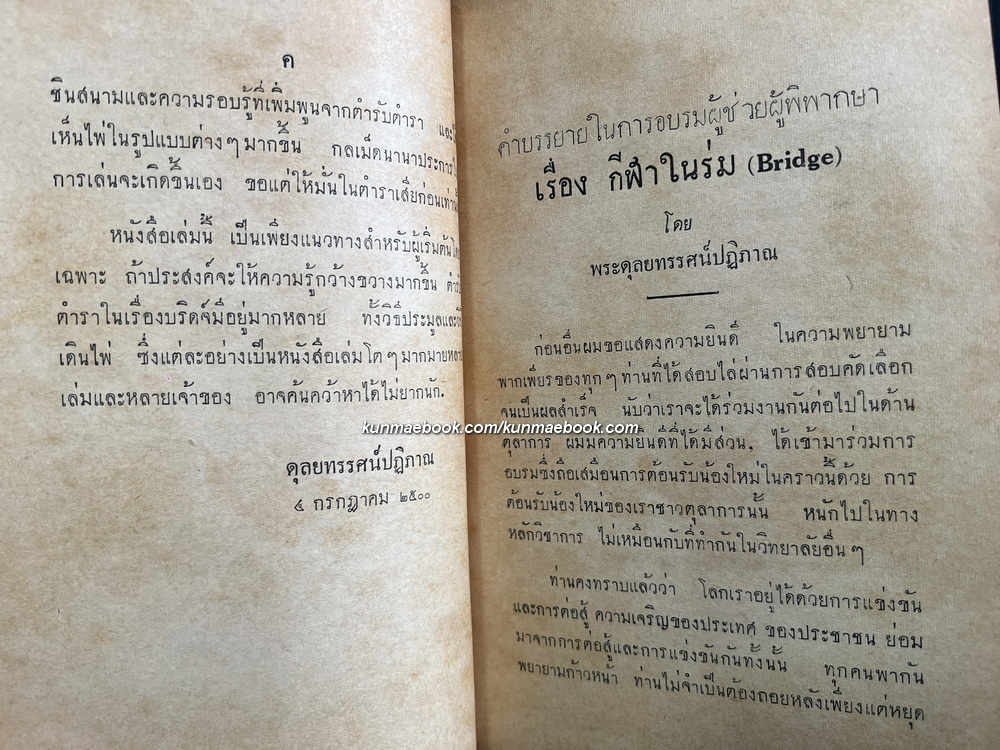 ค
ชินสนามและความรอบรู้ที่เพิ่มพูนจากตำรับตำรา และ
เห็นไพ่ในรูปแบบต่างๆมากขึ้น กลเม็ดนานาประการ
การเล่นจะเกิดขึ้นเอง ขอแต่ให้มั่นในตำราเสียก่อนเท่านั้น
หนังสือเล่มนี้ เป็นเพียงแนวทางสำหรับผู้เริ่มต้น
เฉพาะ ถ้าประสงค์จะให้ความรู้กว้างขวางมากขึ้น
ตำราในเรื่องบริดจ์มีอยู่มากหลาย ทั้งวิธีประมูลและ
เดินไพ่ ซึ่งแต่ละอย่างเป็นหนังสือเล่มโตๆมากมายหลาย
เล่มและหลายเจ้าของ อาจค้นคว้าหาได้ไม่ยากนัก.
ดุลยทรรศน์ปฏิภาณ
๔ กรกฎาคม ๒๕๐๐
คำบรรยายในการอบรมผู้ช่วยผู้พิพากษา
เรื่อง กีฬาในร่ม (Bridge)
โดย
พระดุลยทรรศน์ปฏิภาณ
ก่อนอื่นผมขอแสดงความยินดี ในความพยายาม
พากเพียรของทุกๆท่านที่ได้สอบไล่ผ่านการสอบคัดเลือก
จนเป็นผลสำเร็จ นับว่าเราจะได้ร่วมงานกันต่อไปในด้าน
kunmaebook.com/kunmaebook.com
ตุลาการ ผมมีความยินดีที่ได้มีส่วน, ได้เข้ามาร่วมการ
อบรมซึ่งถือเสมือนการต้อนรับน้องใหม่ในคราวนี้ด้วย การ
ต้อนรับน้องใหม่ของเราชาวตุลาการนั้น หนักไปในทาง
หลักวิชาการ ไม่เหมือนกับที่ทำกันในวิทยาลัยอื่นๆ
ท่านคงทราบแล้วว่า โลกเราอยู่ได้ด้วยการแข่งขัน
และการต่อสู้ ความเจริญของประเทศ ของประชาชน ย่อม
มาจากการต่อสู้และการแข่งขันกันทั้งนั้น ทุกคนพากัน
พยายามก้าวหน้า ท่านไม่จำเป็นต้องถอยหลังเพียงแต่หยุด